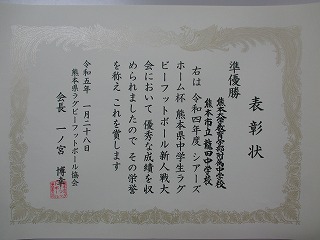 表彰状
準優勝
熊本大学教育学部附属中学校
熊本市立龍田中学校
右は 令和四年度 シアーズ
ホーム杯 熊本県中学生ラグ
ビーフットボール新人戦大
会において 優秀な成績を収
められましたので その栄誉
を称え これを賞します
令和五年 一月二十八日
熊本県ラグビーフットボール協会
会長 一ノ宮 博幸